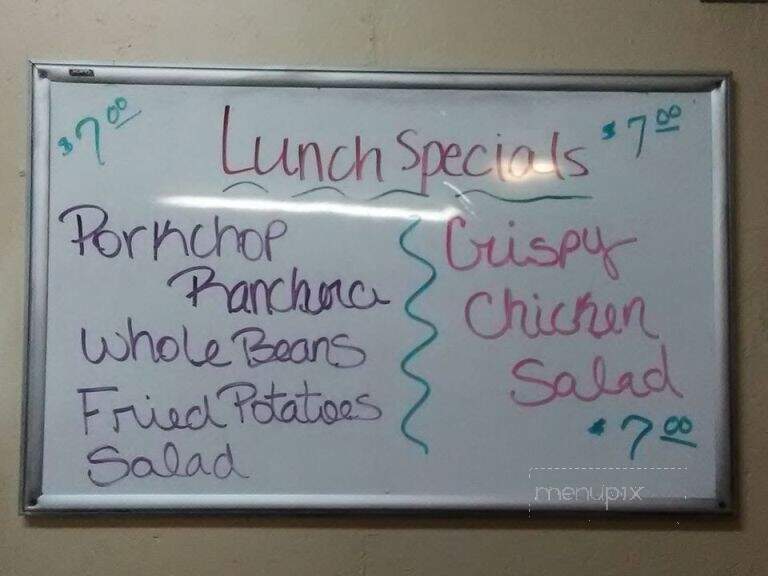 $7.00 Lunch Specials $7.00
Porkchop
Ranchera
Whole Beans
Fried Potatoes
Salad
Crispy
Chicken
Salad
$7.00
menupix